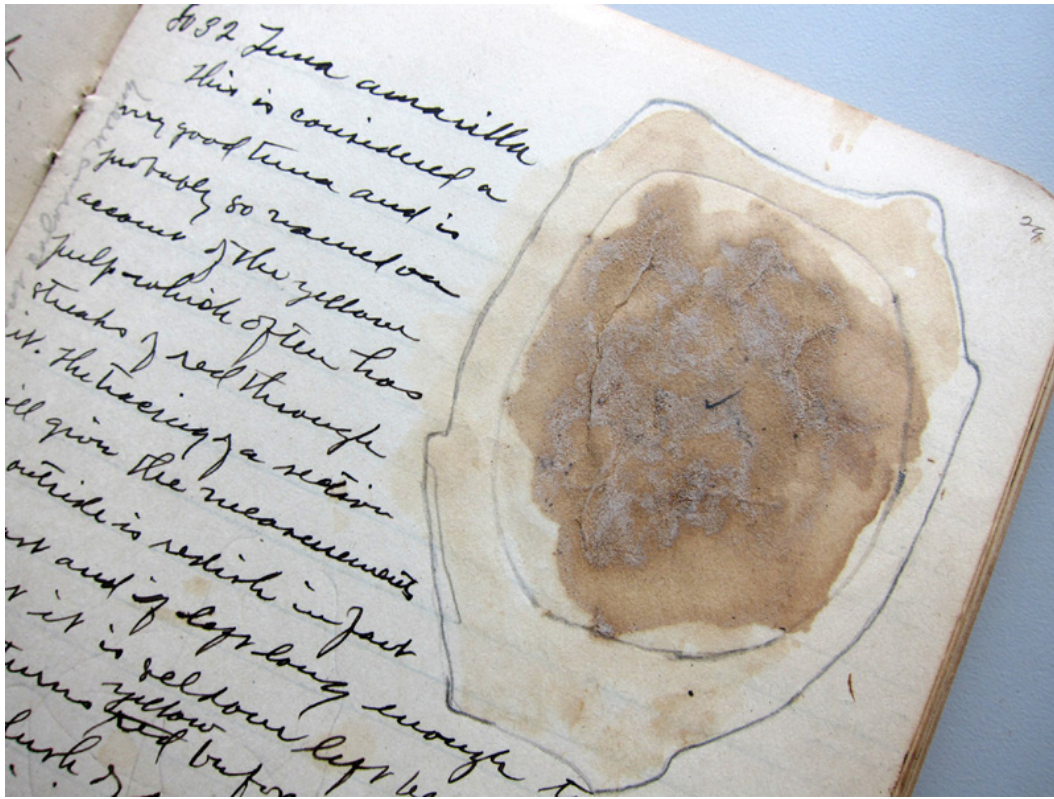 8032 Tuna amarilla
This is considered a
very good tuna and is
probably so named on
account of the yellow
pulp which often has
streaks of red through
it. The tracing of a section
will give the measurements
outside is redish in fact
and if left long enough
it is seldom left
turns yellow red before
blush of
29